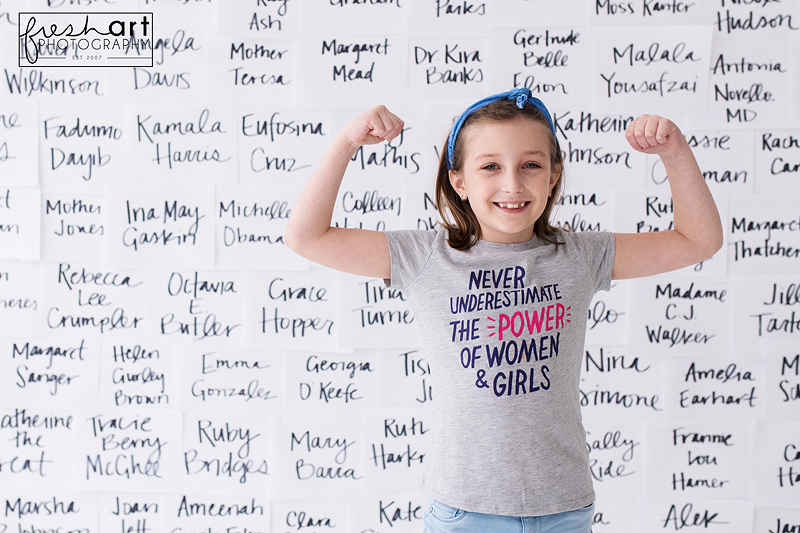 freshart
PHOTOGRAPHY
EST 2007
Ash
Graham
Parks
Moss Kanter
Hudson
Wilkinson
Angela
Davis
Mother
Teresa
Margaret
Mead
Dr. Kira
Banks
Gertrude
Belle
Elion
Malala
Yousafzai
Antonia
Novello,
MD
Fadumo
Dayib
Kamala
Harris
Eufosina
Cruz
Mathis
Katherine
Johnson
Mother
Jones
Ina May
Gaskin
Michelle
Obama
Colleen
Margaret
Thatcher
Rebecca
Lee
Crumpler
Octavia
E
Butler
Grace
Hopper
Tina
Turner
Madame
C.J.
Walker
Jill
NEVER
UNDERESTIMATE
THE POWER
OF WOMEN
& GIRLS
Margaret
Sanger
Helen
Gurley
Brown
Emma
Gonzalez
Georgia
O'Keefe
Nina
Simone
Amelia
Earhart
Catherine
the
Great
Tracie
Berry
McGhee
Ruby
Bridges
Mary
Barra
Ruth
Sally
Ride
Frannie
Lou
Hamer
Marsha
P Johnson
Joan
Jett
Ameenah
Clara
Kate
Alek